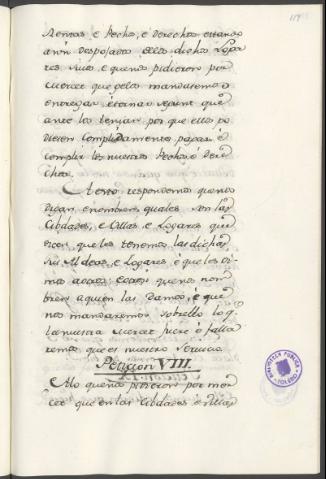 119
Rentas, e Pechos, é Derechos estando
ansi despojados dellos dichos Loga-
res suios, e que nos pidieron por
merced que gelos mandasemos
entregar, é tornar segunt que
ante los tenian, por que ellos po-
diesen complidamente pagar é
complir los nuestros Pechos é dere-
chos.
A esto respondemos que nos
digan, e nombren quales son las
Cibdades, e Villas, e Logares que
dicen que les tenemos las dichas
sus Aldeas, e Logares é que les di-
mos
que nos nom-
bren aquien las Damos, é que
nos mandaremos sobrello lo q.
la nuestra merced fuere é falla-
remos que es nuestro Servicio.
Peticion VIII.
A lo que nos pidieron por mer-
ced que en las Cibdades é Villas
BIBLIOTECA PUBLICA
TOLEDO